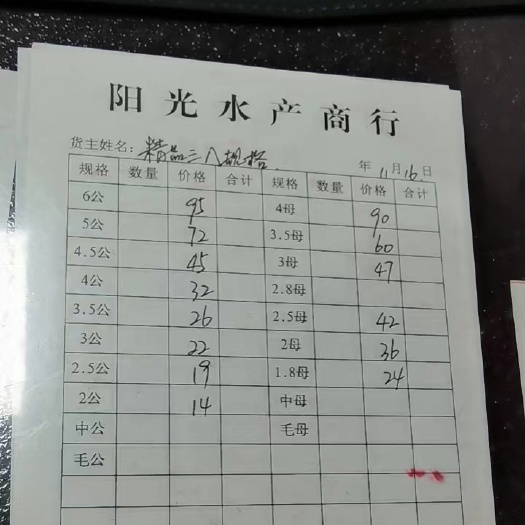 阳光水产商行
货主姓名：精品三八规格 年 11月16日
规格 数量 价格 合计 规格 数量 价格 合计
6公 95 4母 90
5公 72 3.5母 60
4.5公 45 3母 47
4公 32 2.8母
3.5公 26 2.5母 42
3公 22 2母 36
2.5公 19 1.8母 24
2公 14 中母
中公 毛母
毛公